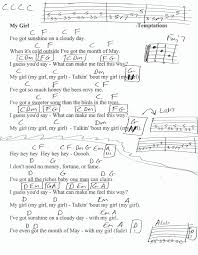 C C C C
My Girl Temptations
C F C F
I've got sunshine on a cloudy day.
C F C F
When it's cold outside I've got the month of May.
C Dm F G C Dm F G
I guess you'd say - What can make me feel this way?
C F
My girl (my girl, my girl) - Talkin' 'bout my girl (my girl)
C F C F
I've got so much honey the bees envy me.
C F C F
I've got a sweeter song than the birds in the trees.
C Dm F G C Dm F G
I guess you'd say - What can make me feel this way?
C Dm G
My girl (my girl, my girl) - Talkin' 'bout my girl (my girl)
C F C F Dm G Em A
Hey hey hey Hey hey hey - Ooooh.
D G D G
I don't need no money, fortune, or fame.
D G D G
I've got all the riches baby one man can claim
D Em G A D Em G A
I guess you'd say - What can make me feel this way?
D Em A
My girl (my girl, my girl) - Talkin' 'bout my girl (my girl)
D Em A
I've got sunshine on a cloudy day - with my girl.
D Em A D
I've even got the month of May - with my girl (fade)